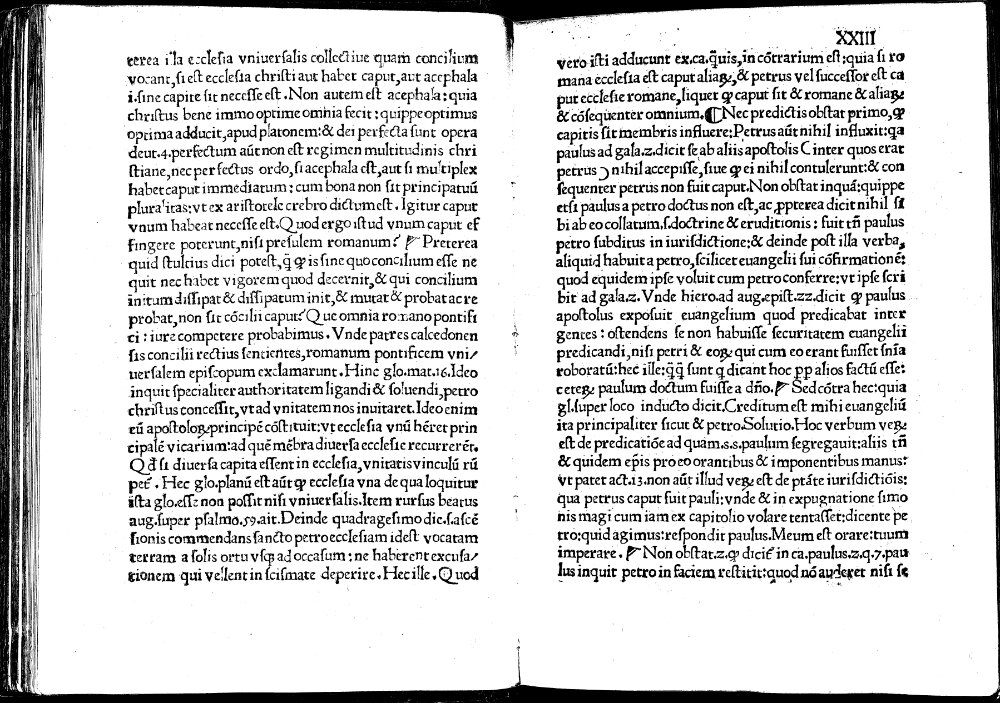 terea illa ecclesia vniuersalis collectiue quam concilium
vocant, si est ecclesia christi aut habet caput, aut acephala
i. sine capite sit necesse est. Non autem est acephala: quia
christus bene immo optime omnia fecit: quippe optimus
optima adducit, apud platonem: & dei perfecta sunt opera
deut. 4. perfectum aūt non est regimen multitudinis chri
stiane, nec perfectus ordo, si acephala est, aut si multiplex
habet caput immediatum: cum bona non sit principatuū
pluralitas: vt ex aristotele crebro dictum est. Igitur caput
vnum habeat necesse est. Quod ergo istud vnum caput ef
fingere poterunt, nisi presulem romanum? Preterea
quid stulcius dici potest, q̄ ꝙ is sine quo concilium esse ne
quit nec habet vigorem quod decernit, & qui concilium
initum dissipat & dissipatum init, & mutat & probat ac re
probat, non sit cōcilii caput? Que omnia romano pontifi
ci: iure competere probabimus. Vnde patres calcedonen
sis concilii rectius sentientes, romanum pontificem vni/
uersalem episcopum exclamarunt. Hinc glo. mat. 16. Ideo
inquit specialiter authoritatem ligandi & soluendi, petro
christus concessit, vt ad vnitatem nos inuitaret. Ideo enim
eū apostoloꝝ principē cōstituit: vt ecclesia vnū hēret prin
cipalē vicarium: ad quē mēbra diuersa ecclesie recurrerēt.
Qđ si diuersa capita essent in ecclesia, vnitatis vinculū rū
pet̄. Hec glo. planū est aūt ꝙ ecclesia vna de qua loquitur
ista glo. esse non possit nisi vniuersalis. Item rursus beatus
aug. super psalmo. 59. ait. Deinde quadragesimo die. s. ascē
sionis commendans sancto petro ecclesiam idest vocatam
terram a solis ortu vsꝗ ad occasum: ne haberent excusa/
tionem qui vellent in scismate deperire. Hec ille. Quod
XXIII
vero isti adducunt ex. ca. q̄uis, in cōtrarium est: quia si ro
mana ecclesia est caput aliaꝝ, & petrus vel successor est ca
put ecclesie romane, liquet ꝙ caput sit & romane & aliaꝝ
& cōsequenter omnium. ¶ Nec predictis obstat primo, ꝙ
capitis sit membris influere: Petrus aūt nihil influxit: qa
paulus ad gala. 2. dicit se ab aliis apostolis (inter quos erat
petrus) nihil accepisse, siue ꝙ ei nihil contulerunt: & con
sequenter petrus non fuit caput. Non obstat inquā: quippe
etsi paulus a petro doctus non est, ac ꝓpterea dicit nihil si
bi ab eo collatum. s. doctrine & eruditionis: fuit tn̄ paulus
petro subditus in iurisdictione: & deinde post illa verba,
aliquid habuit a petro, scilicet euangelii sui cōfirmationē:
quod equidem ipse voluit cum petro conferre: vt ipse scri
bit ad gala. 2. Vnde hiero. ad aug. epist. 22. dicit ꝙ paulus
apostolus exposuit euangelium quod predicabat inter
gentes: ostendens se non habuisse securitatem euangelii
predicandi, nisi petri & eoꝝ qui cum eo erant fuisset sn̄ia
roboratū: hec ille: q̄q̄ sunt q dicant hoc ꝓꝓ alios factū esse:
ceteꝝ paulum doctum fuisse a dn̄o. Sed cōtra hec: quia
gl. super loco inducto dicit. Creditum est mihi euangeliū
ita principaliter sicut & petro. Solutio. Hoc verbum veꝝ
est de predicatiōe ad quam. s. s. paulum segregauit: aliis tn̄
& quidem ep̄is pro eo orantibus & imponentibus manus:
vt patet act. 13. non aūt illud veꝝ est de p̄tāte iurisdictiōis:
qua petrus caput fuit pauli: vnde & in expugnatione simo
nis magi cum iam ex capitolio volare tentasset: dicente pe
tro: quid agimus: respondit paulus. Meum est orare: tuum
imperare. Non obstat. 2. ꝙ dicit̄ in ca. paulus. 2. q. 7. pau
lus inquit petro in faciem restitit: quod nō auderet nisi se